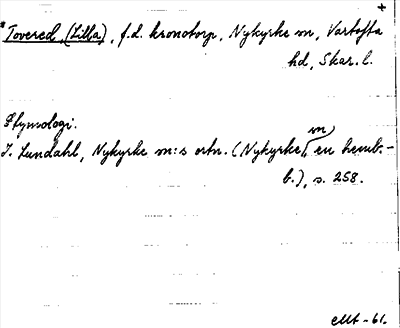 +
*Tovered (Lilla), f.d. kronotorp, Nykyrke sn, Vartofta
hd, Skar. l.
Etymologi.
I. Lundahl, Nykyrke sn:s ortn. (Nykyrke sn, en hemb.-
b.), s. 258.
EMt -61.